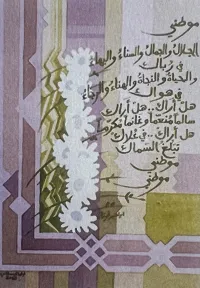 موطني
الجلال والجمال والسناء والبهاء
في رباك
والحياة والنجاة والهناء والرجاء
في هواك
هل أراك .. هل أراك
سالما منعما وغانما مكرما
هل أراك .. في علاك
تبلغ السماك
موطني
موطني